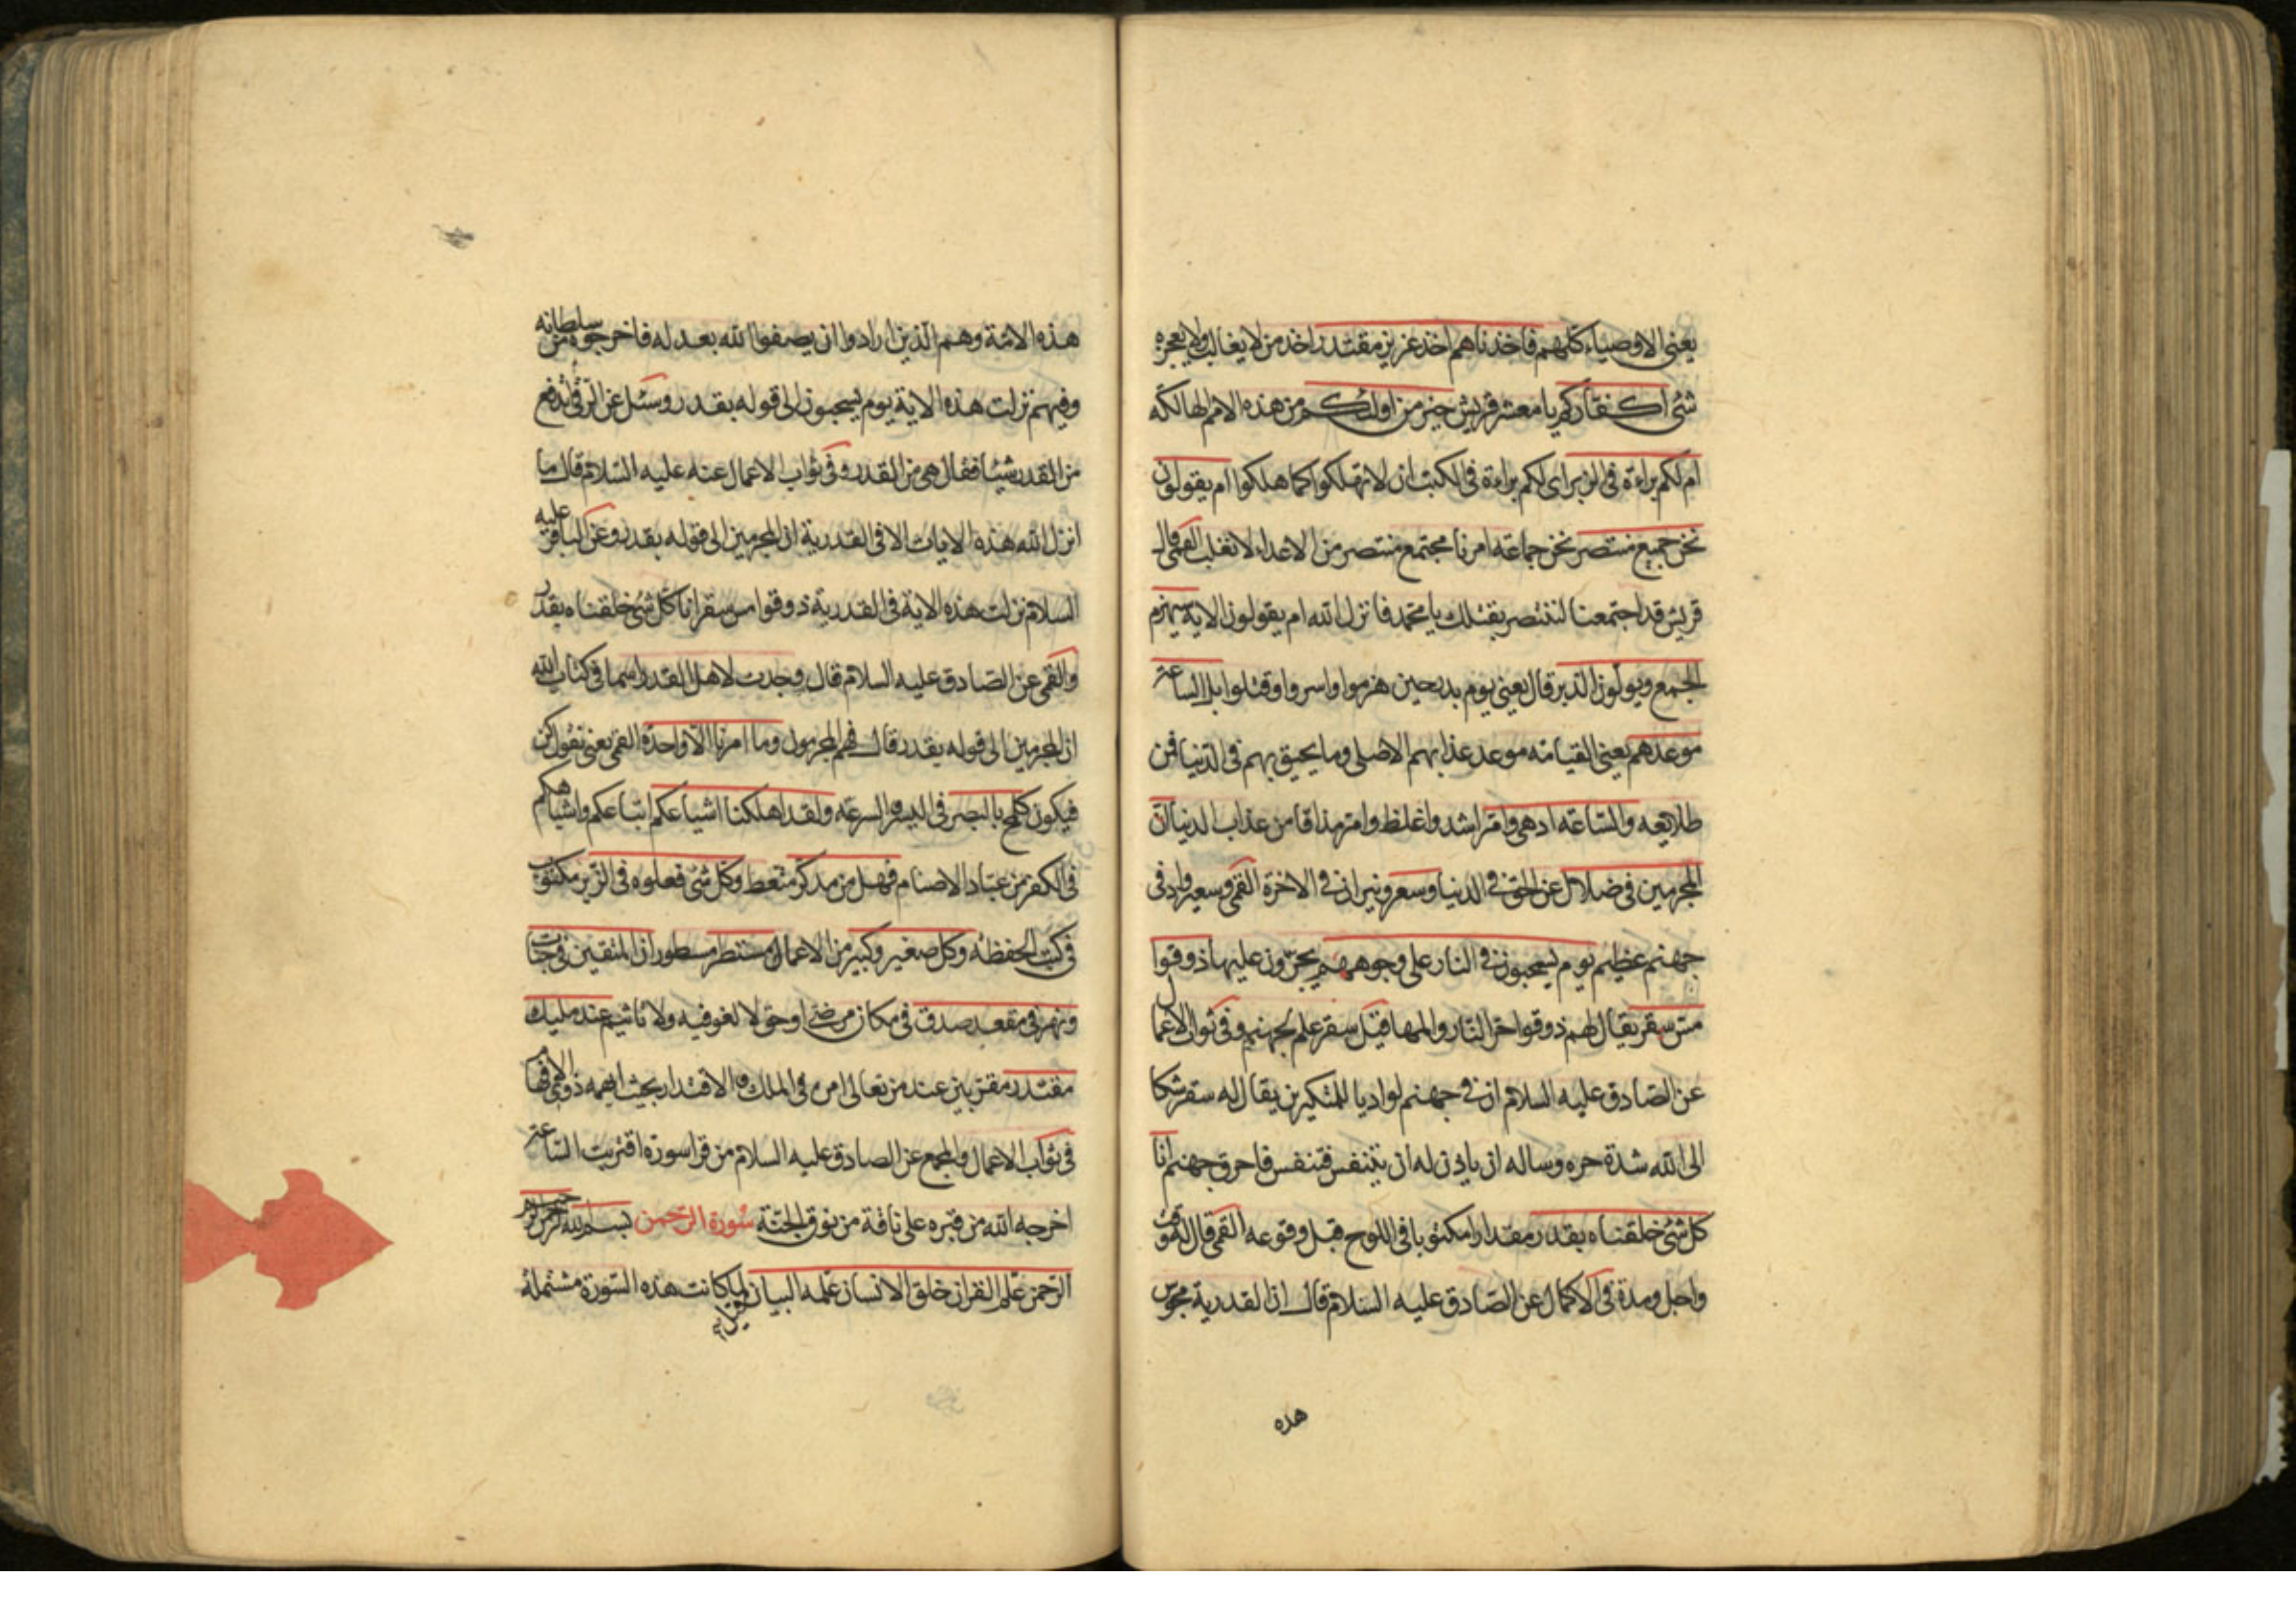 يعنى الاوصياء كلهم فاخذناهم اخذ عزيز مقتدر اخذ من لا يغالب ولا يعجزه
شئ اكفاركم يا معشر قريش خير من اولئكم من هذه الامم الهالكه
ام لكم براءة فى الزبر اى لكم براءة فى الكتب ان لا تهلكوا كما هلكوا ام يقولون
نحن جميع منتصر نحن جماعة امرنا مجتمع منتصر من الاعداء لا نغلب القمى قال
قريش قد اجتمعنا لننتصر بقتلك يا محمد فانزل الله ام يقولون الاية سيهزم
الجمع ويولون الدبر قال يعنى يوم بدر حين هزموا واسروا وقتلوا بل الساعة
موعدهم يعنى القيامة موعد عذابهم الاصلى وما يحيق بهم فى الدنيا فمن
طلايعه والساعة ادهى وامر اشد واغلظ وامر مذاقا من عذاب الدنيا ان
المجرمين فى ضلال عن الحق فى الدنيا وسعر ونيران فى الاخرة القمى وسعر واد فى
جهنم عظيم يوم يسحبون فى النار على وجوههم يجرون عليها ذوقوا
مس سقر يقال لهم ذوقوا حر النار والمها قيل سقر علم لجهنم وفى ثواب الاعمال
عن الصادق عليه السلام ان فى جهنم لواديا للمتكبرين يقال له سقر شكا
الى الله شدة حره وساله ان ياذن له ان يتنفس فتنفس فاحرق جهنم انا
كل شئ خلقناه بقدر مقدارا مكتوبا فى اللوح قبل وقوعه القمى قال له وقت
واجل ومدة فى الاكمال عن الصادق عليه السلام قال ان القدرية مجوس
هذه
هذه الامة وهم الذين ارادوا ان يصفوا الله بعدله فاخرجوه من سلطانه
وفيهم نزلت هذه الاية يوم يسحبون الى قوله بقدر وسئل عن الرقى اتدفع
من القدر شيئا فقال هى من القدر وفى ثواب الاعمال عنه عليه السلام قال ما
انزل الله هذه الايات الا فى القدرية ان المجرمين الى قوله بقدر وعن الباقر عليه
السلام نزلت هذه الاية فى القدرية ذوقوا مس سقر انا كل شئ خلقناه بقدر
والقمى عن الصادق عليه السلام قال وجدت لاهل القدر اسما فى كتاب الله
ان المجرمين الى قوله بقدر قال فهم المجرمون وما امرنا الا واحدة القمى يعنى نقول كن
فيكون كلمح بالبصر فى اليسر والسرعة ولقد اهلكنا اشياعكم اتباعكم واشباهكم
فى الكفر من عباد الاصنام فهل من مدكر متعظ وكل شئ فعلوه فى الزبر مكتوب
فى كتب الحفظة وكل صغير وكبير من الاعمال مستطر مسطور ان المتقين فى جنات
ونهر فى مقعد صدق فى مكان مرضى او حق لا لغو فيه ولا تاثيم عند مليك
مقتدر مقربين عند من تعالى امره فى الملك والاقتدار بحيث ابهمه ذووا الافهام
فى ثواب الاعمال والمجمع عن الصادق عليه السلام من قرا سورة اقتربت الساعة
اخرجه الله من قبره على ناقة من نوق الجنة سورة الرحمن بسم الله الرحمن الرحيم
الرحمن علم القران خلق الانسان علمه البيان لما كانت هذه السورة مشتملة